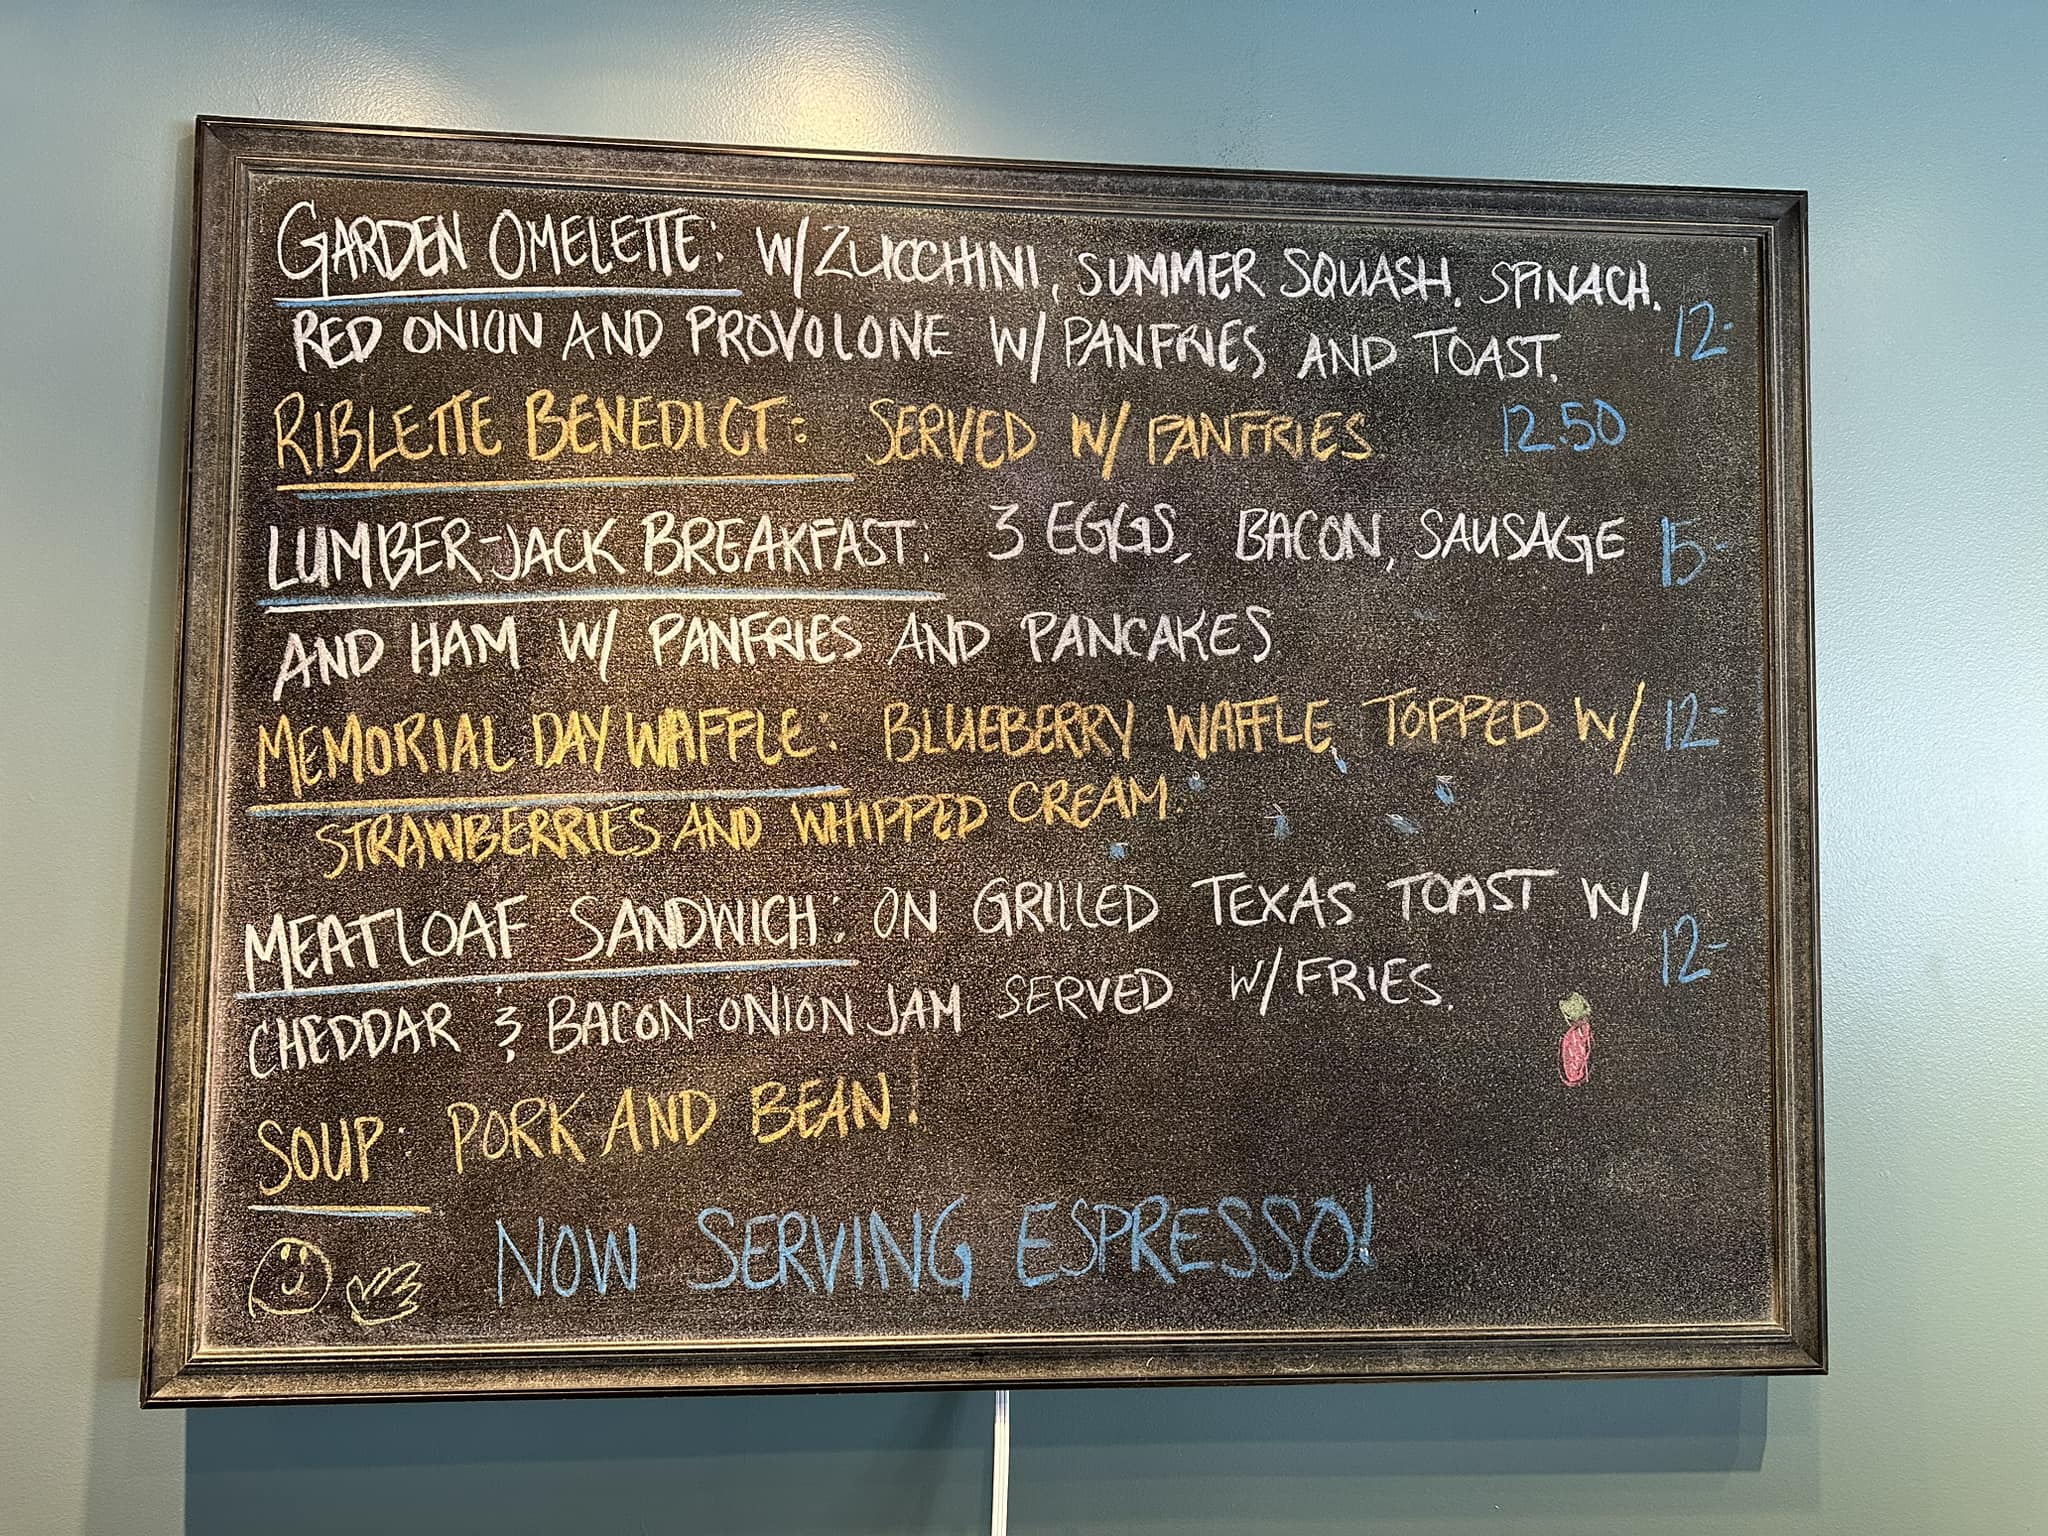 GARDEN OMELETTE: W/ ZUCCHINI, SUMMER SQUASH, SPINACH,
RED ONION AND PROVOLONE W/ PANFRIES AND TOAST. 12-
RIBLETTE BENEDICT: SERVED W/ PANFRIES 12.50
LUMBER-JACK BREAKFAST: 3 EGGS, BACON, SAUSAGE 15-
AND HAM W/ PANFRIES AND PANCAKES
MEMORIAL DAY WAFFLE: BLUEBERRY WAFFLE TOPPED W/ 12-
STRAWBERRIES AND WHIPPED CREAM.
MEATLOAF SANDWICH: ON GRILLED TEXAS TOAST W/ 12-
CHEDDAR & BACON-ONION JAM SERVED W/ FRIES.
SOUP: PORK AND BEAN!
NOW SERVING ESPRESSO!